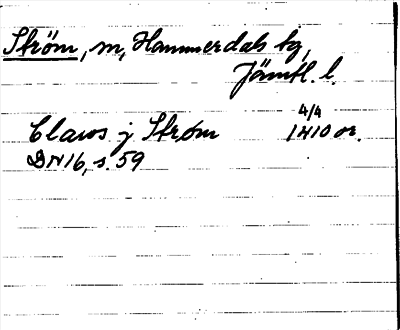 Strøm, m, Hammerdals tg,
Jämtl. l.
4/4
Claws j Strøm 1410 or.
DN 16, s. 59